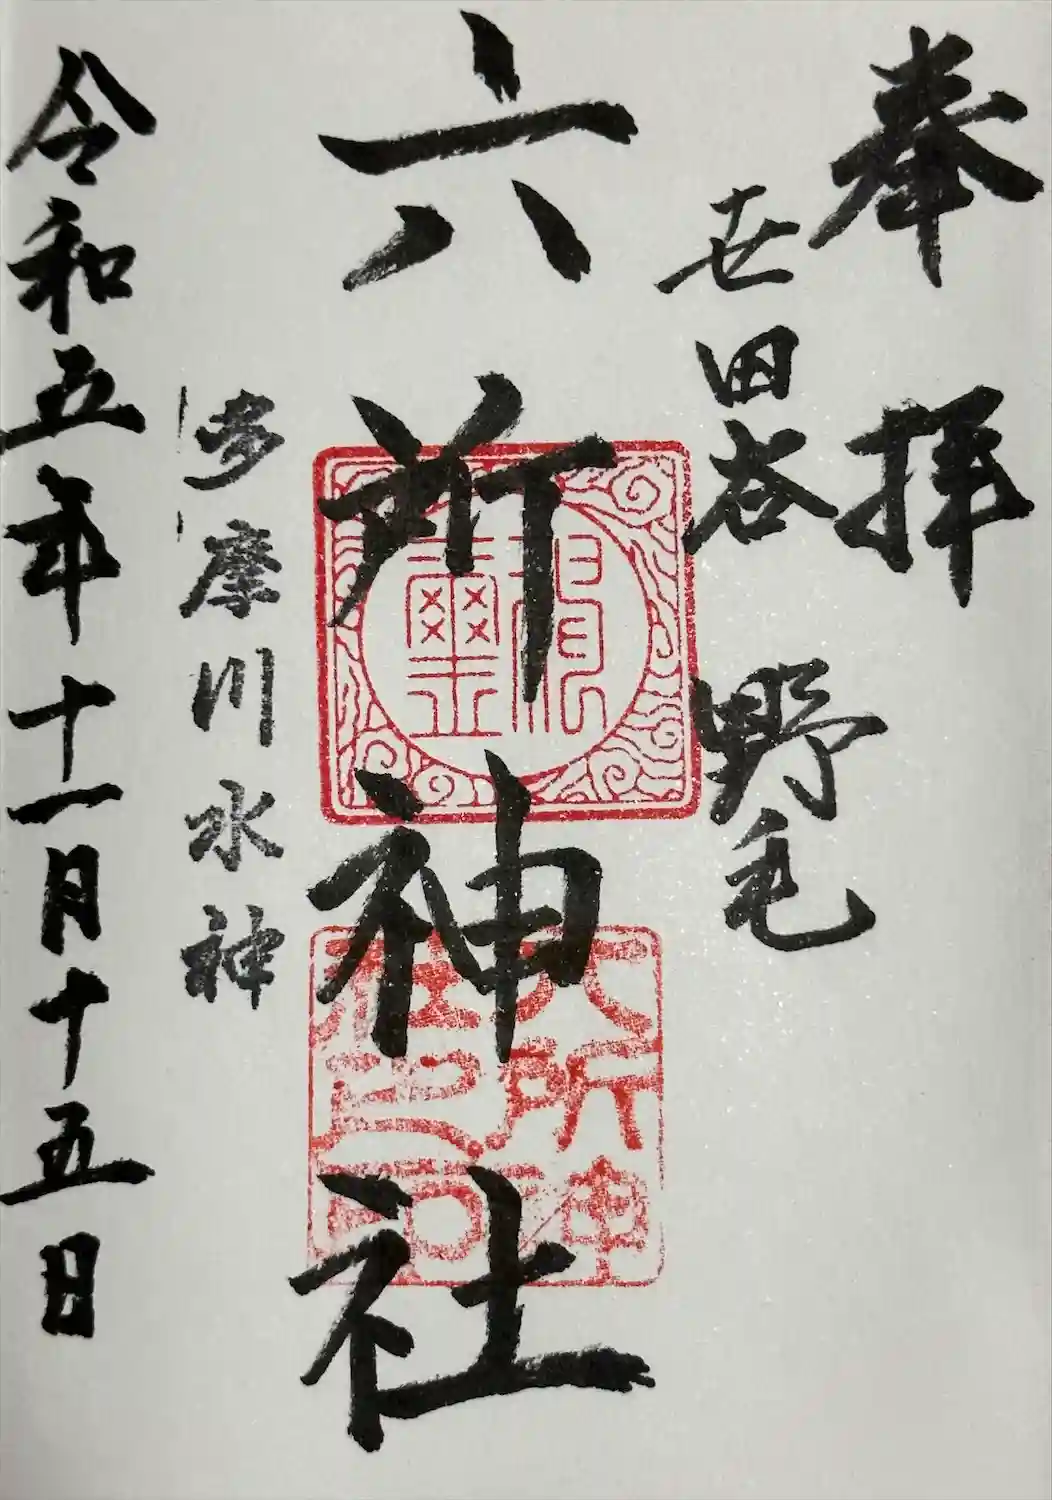 奉拝
世田谷 野毛
六所神社
多摩川水神
令和五年十一月十五日
六所神
社印